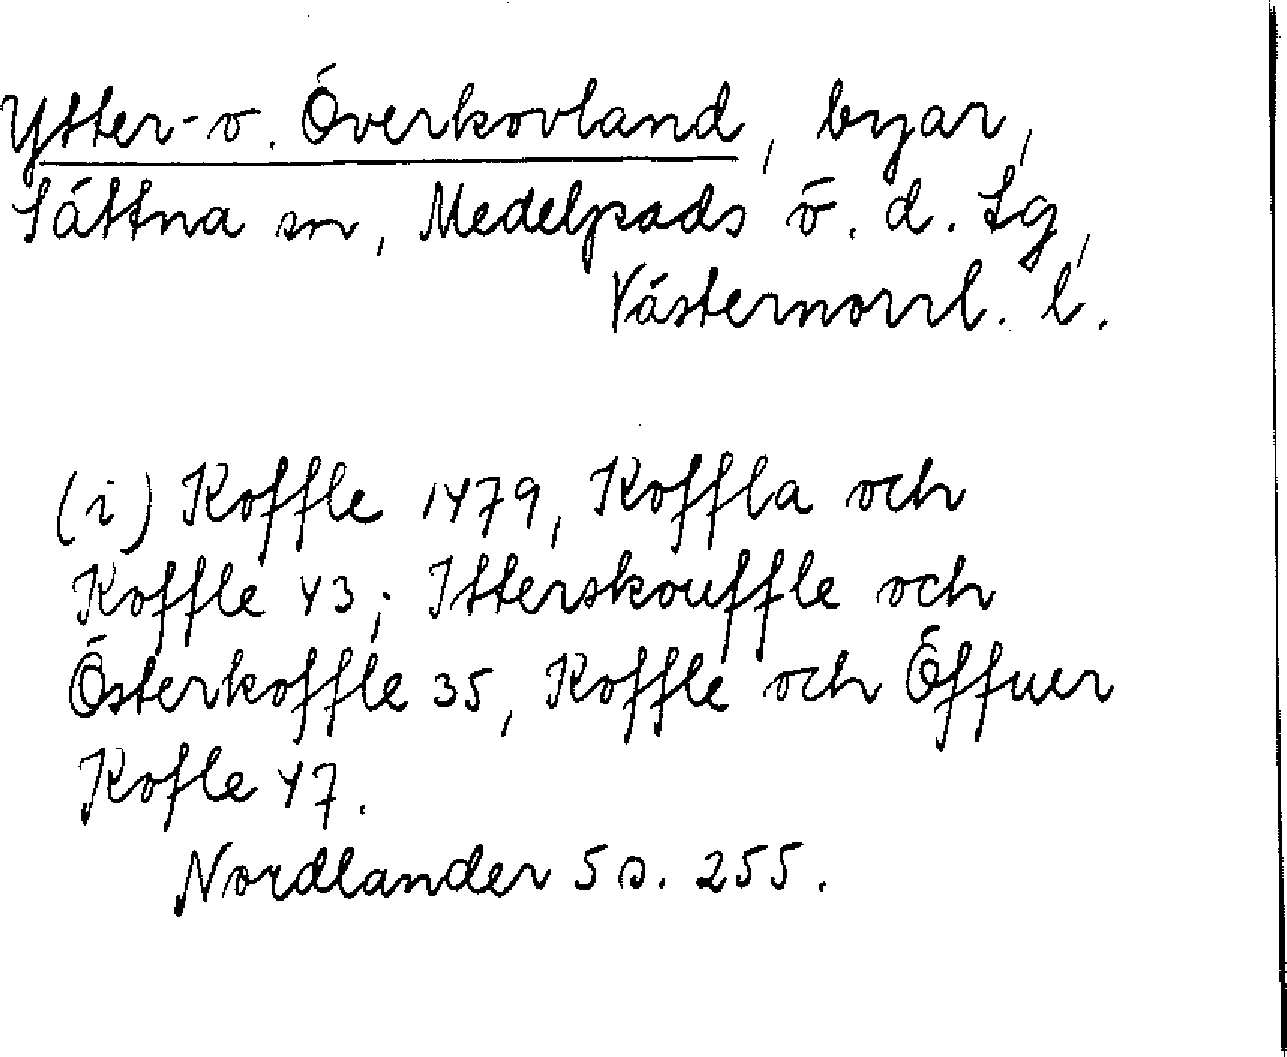 Ytter- o. Överkovland, byar,
Sättna sn, Medelpads ö. d. Lg,
Västernorrl. l.
(i) Koffle 1479, Koffla och
Koffle 43; Itterskouffle och
Österkoffle 35, Koffle och Öffuer
Kofle 47.
Nordlander 5 s. 255.